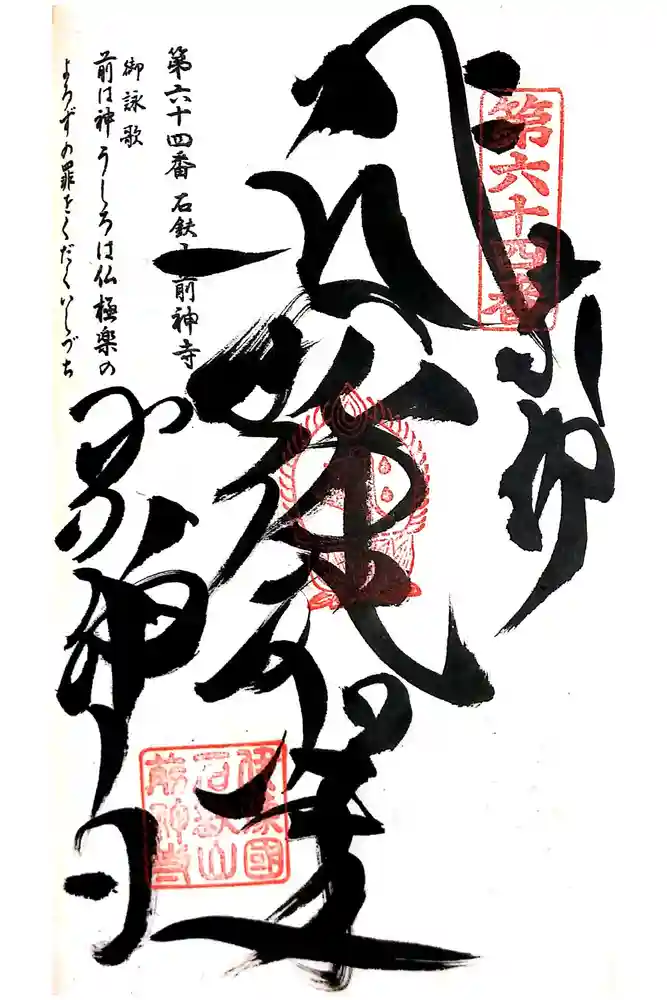 第六十四番
奉納
前神寺
伊豫國
石鈇山
前神寺
第六十四番 石鈇山前神寺
御詠歌
前は神うしろは仏極楽の
よろずの罪をくだくいしづち